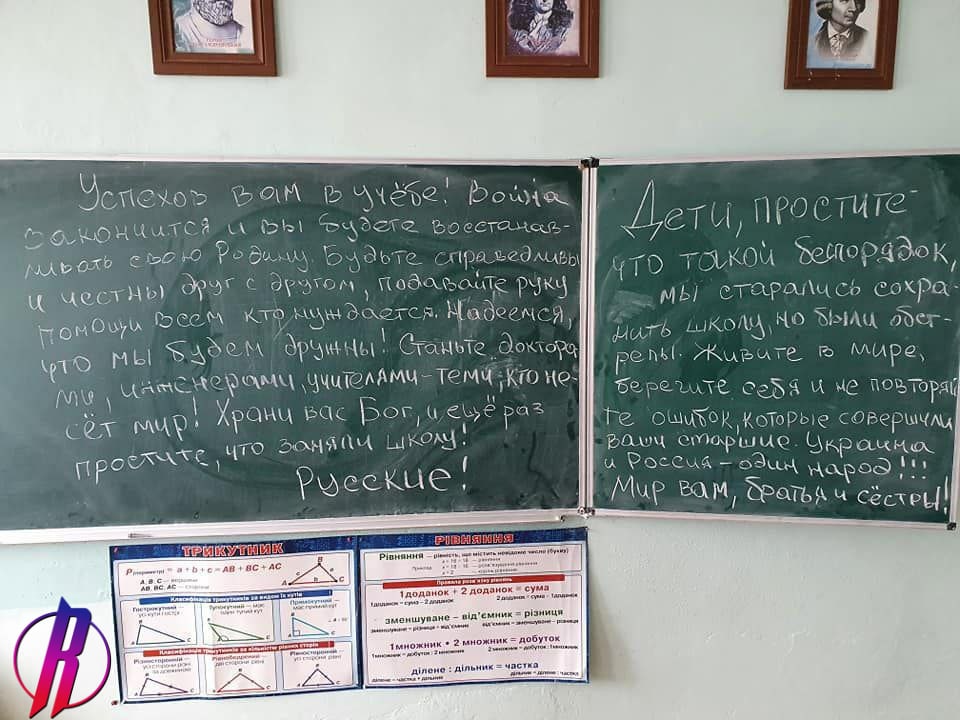 Успехов вам в учёбе! Война
закончится и вы будете восстанав-
ливать свою Родину. Будьте справедливы
и честны друг с другом, подавайте руку
помощи всем кто нуждается. Надеемся,
что мы будем дружны! Станьте доктора-
ми, инженерами, учителями-теми, кто не-
сёт мир! Храни вас Бог, и ещё раз
простите, что заняли школу!
Русские!
Дети, простите
что такой беспорядок,
мы старались сохра-
нить школу, но были обст-
релы. Живите в мире,
берегите себя и не повторяй
те ошибок, которые совершили
ваши старшие. Украина
и Россия-один народ!!!
Мир вам, братья и сёстры!
ТРИКУТНИК
Pпериметри = a + b + c = AB + BC + AC
A, B, C — вершини
AB, BC, AC — сторони
B
a
c
A
b
C
Класифікація трикутників за видом їх кутів
Гострокутний —
усі кути гострі
Тупокутний — має
один тупий кут
Прямокутний —
має прямий кут
Класифікація трикутників за кількістю рівних сторін
Різносторонній —
усі сторони різні
за довжиною
Рівнобедрений —
дві сторони рівні
Рівносторонній —
усі сторони рівні
РІВНЯННЯ
Рівняння — рівність, що містить невідоме число (букву)
Правила розв'язку рівнянь
1доданок + 2 доданок = сума
1доданок = сума - 2 доданок
2 доданок = сума - 1доданок
зменшуване – від'ємник = різниця
зменшуване = різниця + від'ємник
від'ємник = зменшуване – різниця
1множник • 2 множник = добуток
1множник = добуток : 2 множник
2 множник = добуток : 1множник
ділене : дільник = частка
ділене = частка • дільник
дільник = ділене : частка
R